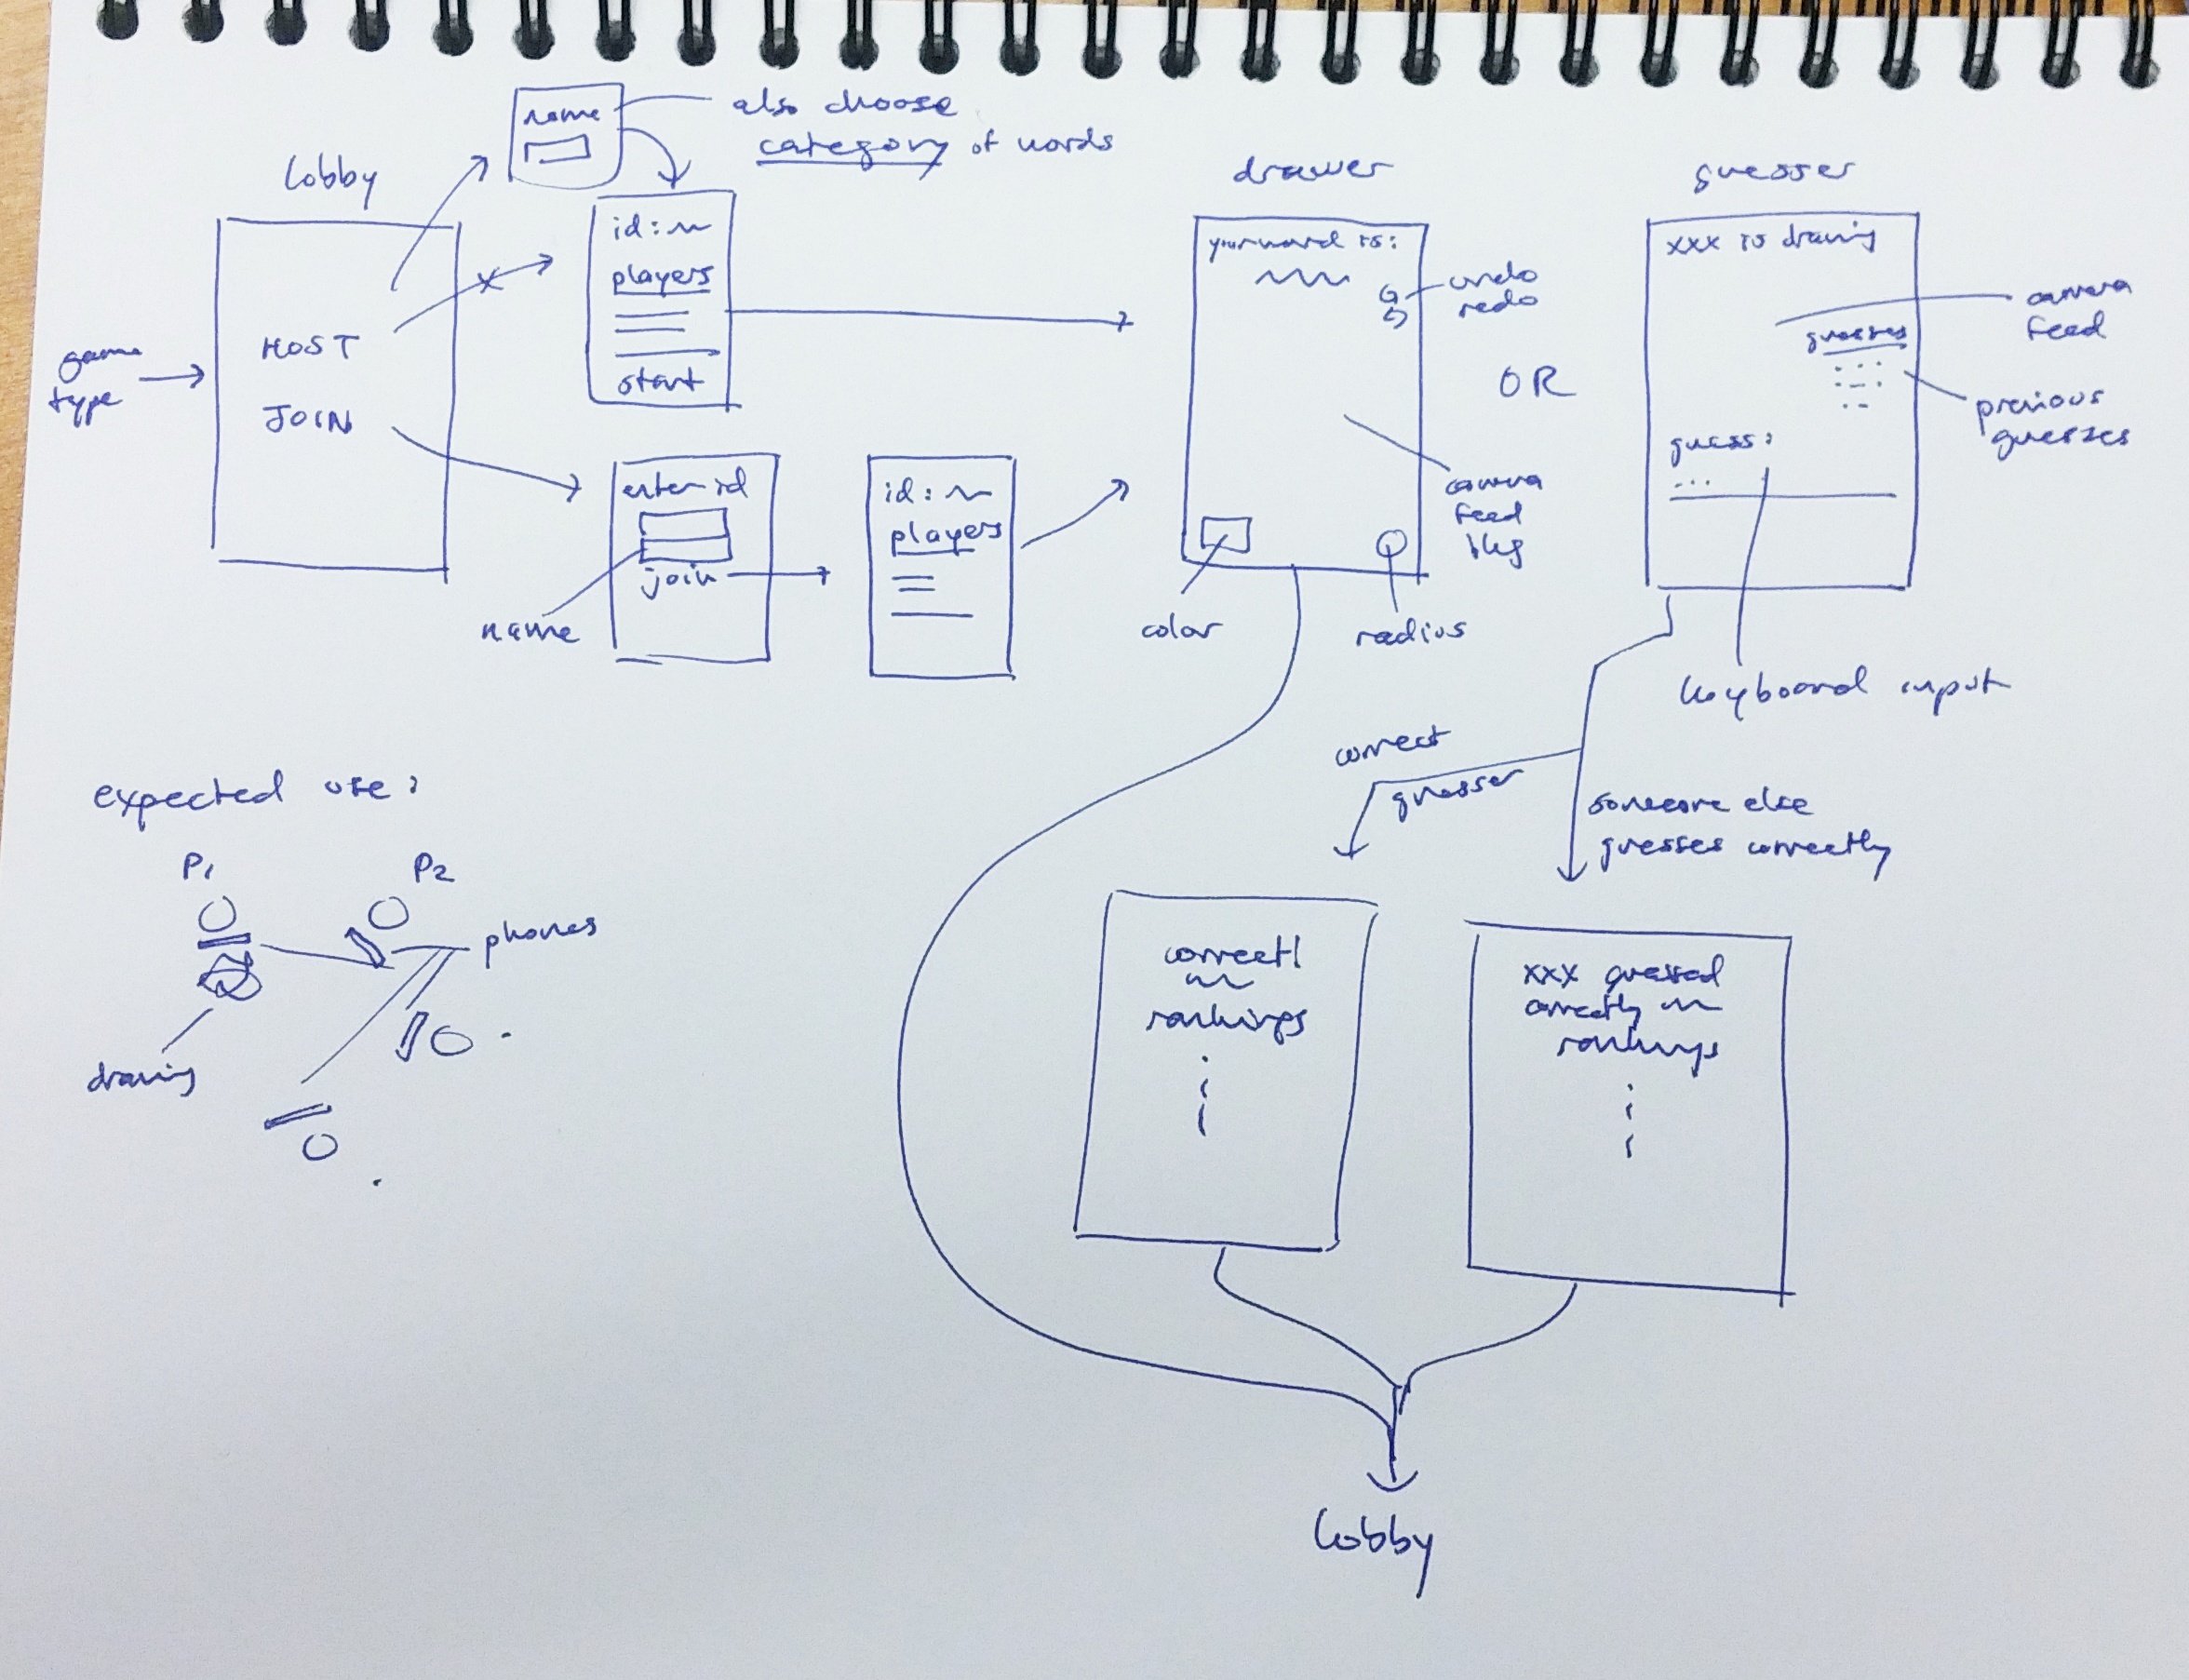 name
also choose
category of words
lobby
HOST
JOIN
game
type
id:
players
start
enter id
join
name
id:
players
drawer
your word is:
undo
redo
camera
feed
bkg
color
radius
OR
guesser
xxx is drawing
camera
feed
guesses
previous
guesses
guess:
...
keyboard input
correct
guesser
someone else
guesses correctly
correct!
rankings
xxx guessed
correctly
rankings
lobby
expected use:
P1
P2
phones
drawing